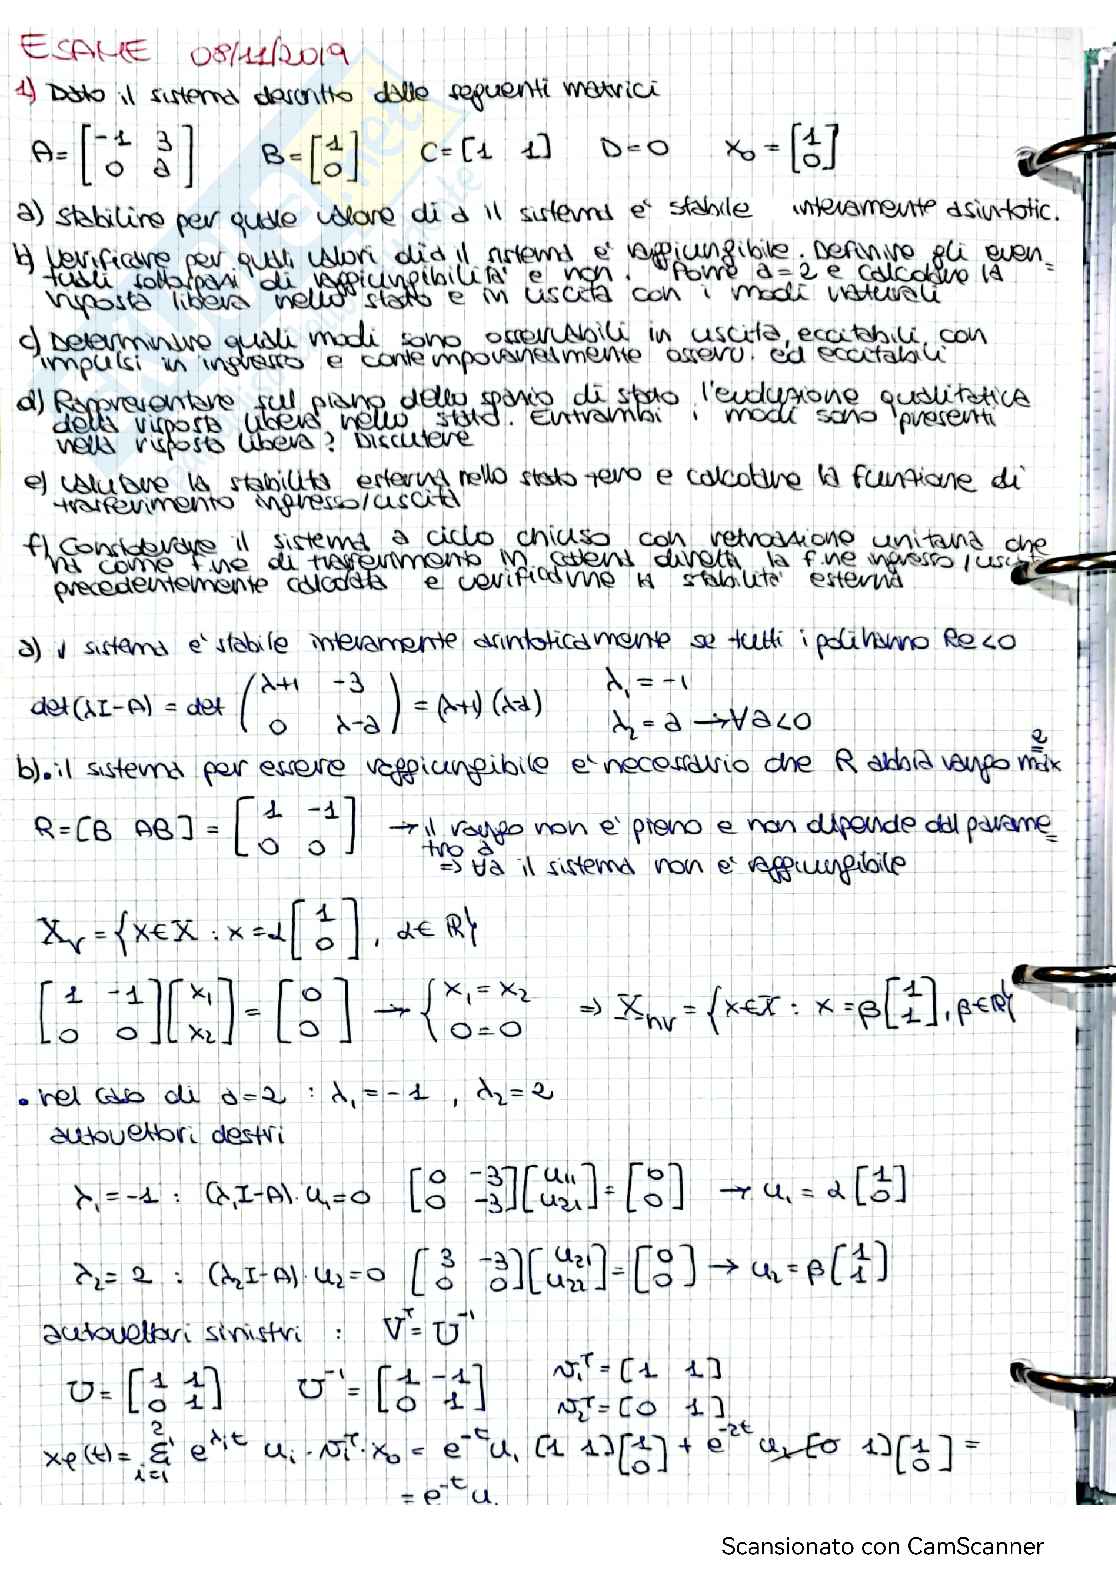 ESAME 08/11/2019
1) Dato il sistema descritto dalle seguenti matrici
A = [-1 3; 0 a] B = [1; 0] C = [1 1] D = 0 x₀ = [1; 0]
a) Stabilire per quale valore di a il sistema e' stabile internamente asintotic.
b) Verificare per quali valori di a il sistema e' raggiungibile. Definire gli even=
tuali sottospazi di raggiungibilità e non. Porre a=2 e calcolare la
risposta libera nello stato e in uscita con i modi naturali
c) Determinare quali modi sono osservabili in uscita, eccitabili con
impulsi in ingresso e contemporaneamente osserv. ed eccitabili
d) Rappresentare sul piano dello spazio di stato l'evoluzione qualitativa
della risposta libera nello stato. Entrambi i modi sono presenti
nella risposta libera? Discutere
e) valutare la stabilità esterna nello stato zero e calcolare la funzione di
trasferimento ingresso/uscita
f) Considerare il sistema a ciclo chiuso con retroazione unitaria che
ha come f.ne di trasferimento in catena diretta la f.ne ingresso/uscita
precedentemente calcolata e verificarne la stabilità esterna
a) il sistema e' stabile internamente asintoticamente se tutti i poli hanno Re<0
det(λI-A) = det (λ+1 -3; 0 λ-a) = (λ+1)(λ-a) λ₁ = -1
λ₂ = a → ∀a<0
b) • il sistema per essere raggiungibile e' necessario che R abbia rango max 2
R = [B AB] = [1 -1; 0 0] → il rango non e' pieno e non dipende dal parame=
tro a
⇒ ∀a il sistema non e' raggiungibile
Xr = {x∈X : x = α[1; 0], α∈ℝ}
[1 -1; 0 0][x₁; x₂] = [0; 0] → {x₁ = x₂; 0=0 ⇒ Xnr = {x∈X : x = β[1; 1], β∈ℝ}
• nel caso di a=2 : λ₁ = -1 , λ₂ = 2
autovettori destri
λ₁ = -1 : (λ₁I-A)·u₁ = 0 [0 -3; 0 -3][u₁₁; u₂₁] = [0; 0] → u₁ = α[1; 0]
λ₂ = 2 : (λ₂I-A)·u₂ = 0 [3 -3; 0 0][u₂₁; u₂₂] = [0; 0] → u₂ = β[1; 1]
autovettori sinistri : Vᵀ = U⁻¹
U = [1 1; 0 1] U⁻¹ = [1 -1; 0 1] v₁ᵀ = [1 1]
v₂ᵀ = [0 1]
xℓ(t) = Σ²ᵢ₌₁ e^λᵢt uᵢ · vᵢᵀ · x₀ = e^-t u₁ [1 1][1; 0] + e^-2t u₂ [0 1][1; 0] =
= e^-t u₁
Scansionato con CamScanner